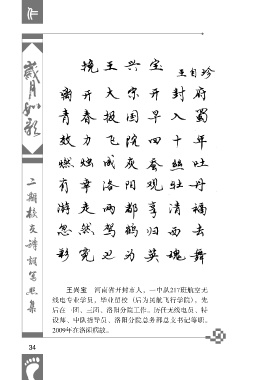 挽王兴宝
王自珍
离开大宋开封府
青春报国早入蜀
效力飞院四十年
燃烛成灰蚕丝吐
有幸洛阳观牡丹
游走两都享清福
忽然驾鹤归西去
彩霓卫为英魂舞
王兴宝 河南省开封市人，一中队217班航空无
线电专业学员，毕业留校（后为民航飞行学院），先
后在一团、三团、洛阳分院工作。历任无线电员、特
设师、中队指导员、洛阳分院总务部总支书记等职。
2009年在洛阳病故。
岁月如歌
二期校友诗词写照集
34